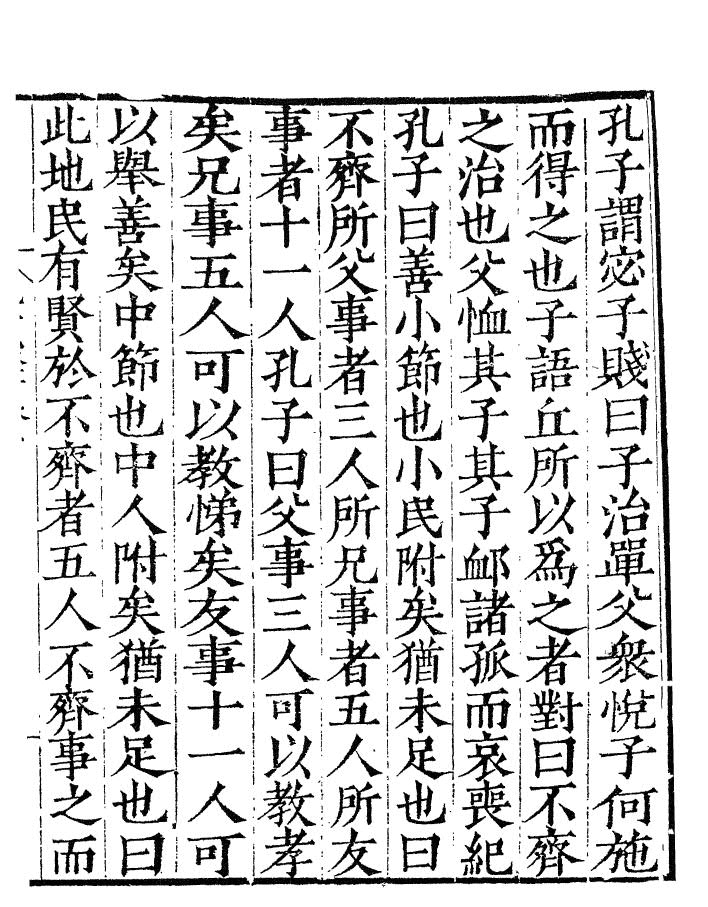 孔子謂宓子賤曰子治單父衆悅子何施
而得之也子語丘所以爲之者對曰不齊
之治也父恤其子其子䘏諸孤而哀喪紀
孔子曰善小節也小民附矣猶未足也曰
不齊所父事者三人所兄事者五人所友
事者十一人孔子曰父事三人可以教孝
矣兄事五人可以教悌矣友事十一人可
以舉善矣中節也中人附矣猶未足也曰
此地民有賢於不齊者五人不齊事之而